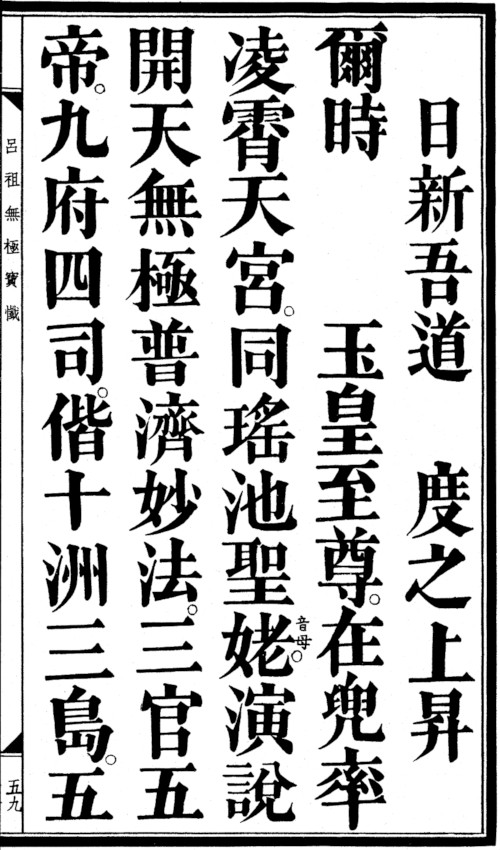 日新吾道　度之上昇
爾時　玉皇至尊。在兜率
凌霄天宮。同瑤池聖姥音母。演說
開天無極普濟妙法。三官五
帝。九府四司。偕十洲三島。五
呂祖無極寶懺
五九